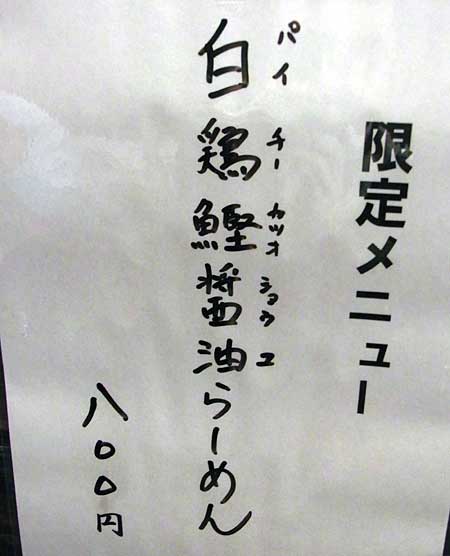 限定メニュー
パイチーカツオショウユ
白鶏鰹醤油らーめん
八〇〇円